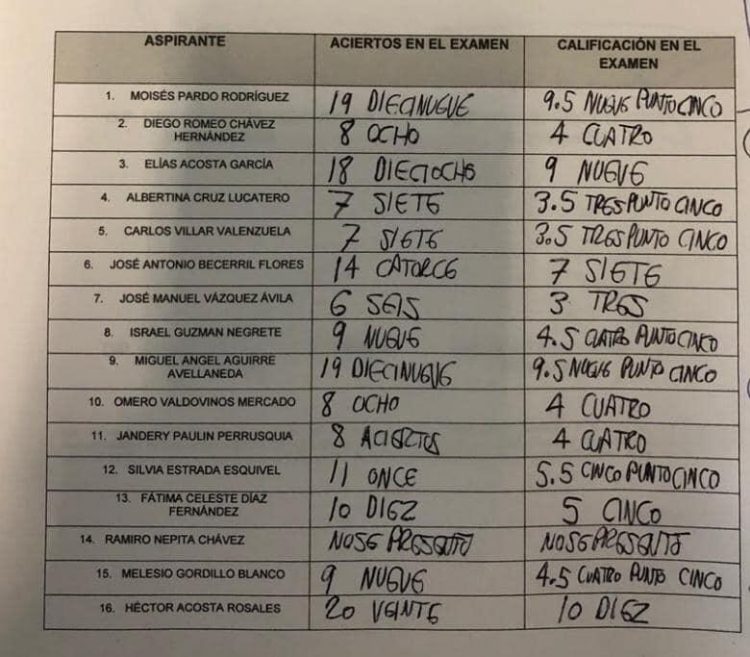 ASPIRANTE ACIERTOS EN EL EXAMEN CALIFICACIÓN EN EL
EXAMEN
1. MOISÉS PARDO RODRÍGUEZ 19 DIECINUEVE 9.5 NUEVE PUNTO CINCO
2. DIEGO ROMEO CHÁVEZ
HERNÁNDEZ 8 OCHO 4 CUATRO
3. ELÍAS ACOSTA GARCÍA 18 DIECIOCHO 9 NUEVE
4. ALBERTINA CRUZ LUCATERO 7 SIETE 3.5 TRES PUNTO CINCO
5. CARLOS VILLAR VALENZUELA 7 SIETE 3.5 TRES PUNTO CINCO
6. JOSÉ ANTONIO BECERRIL FLORES 14 CATORCE 7 SIETE
7. JOSÉ MANUEL VÁZQUEZ ÁVILA 6 SEIS 3 TRES
8. ISRAEL GUZMAN NEGRETE 9 NUEVE 4.5 CUATRO PUNTO CINCO
9. MIGUEL ANGEL AGUIRRE
AVELLANEDA 19 DIECINUEVE 9.5 NUEVE PUNTO CINCO
10. OMERO VALDOVINOS MERCADO 8 OCHO 4 CUATRO
11. JANDERY PAULIN PERRUSQUIA 8 ACIERTOS 4 CUATRO
12. SILVIA ESTRADA ESQUIVEL 11 ONCE 5.5 CINCO PUNTO CINCO
13. FÁTIMA CELESTE DÍAZ
FERNÁNDEZ 10 DIEZ 5 CINCO
14. RAMIRO NEPITA CHÁVEZ NO SE PRESENTÓ NO SE PRESENTÓ
15. MELESIO GORDILLO BLANCO 9 NUEVE 4.5 CUATRO PUNTO CINCO
16. HÉCTOR ACOSTA ROSALES 20 VEINTE 10 DIEZ